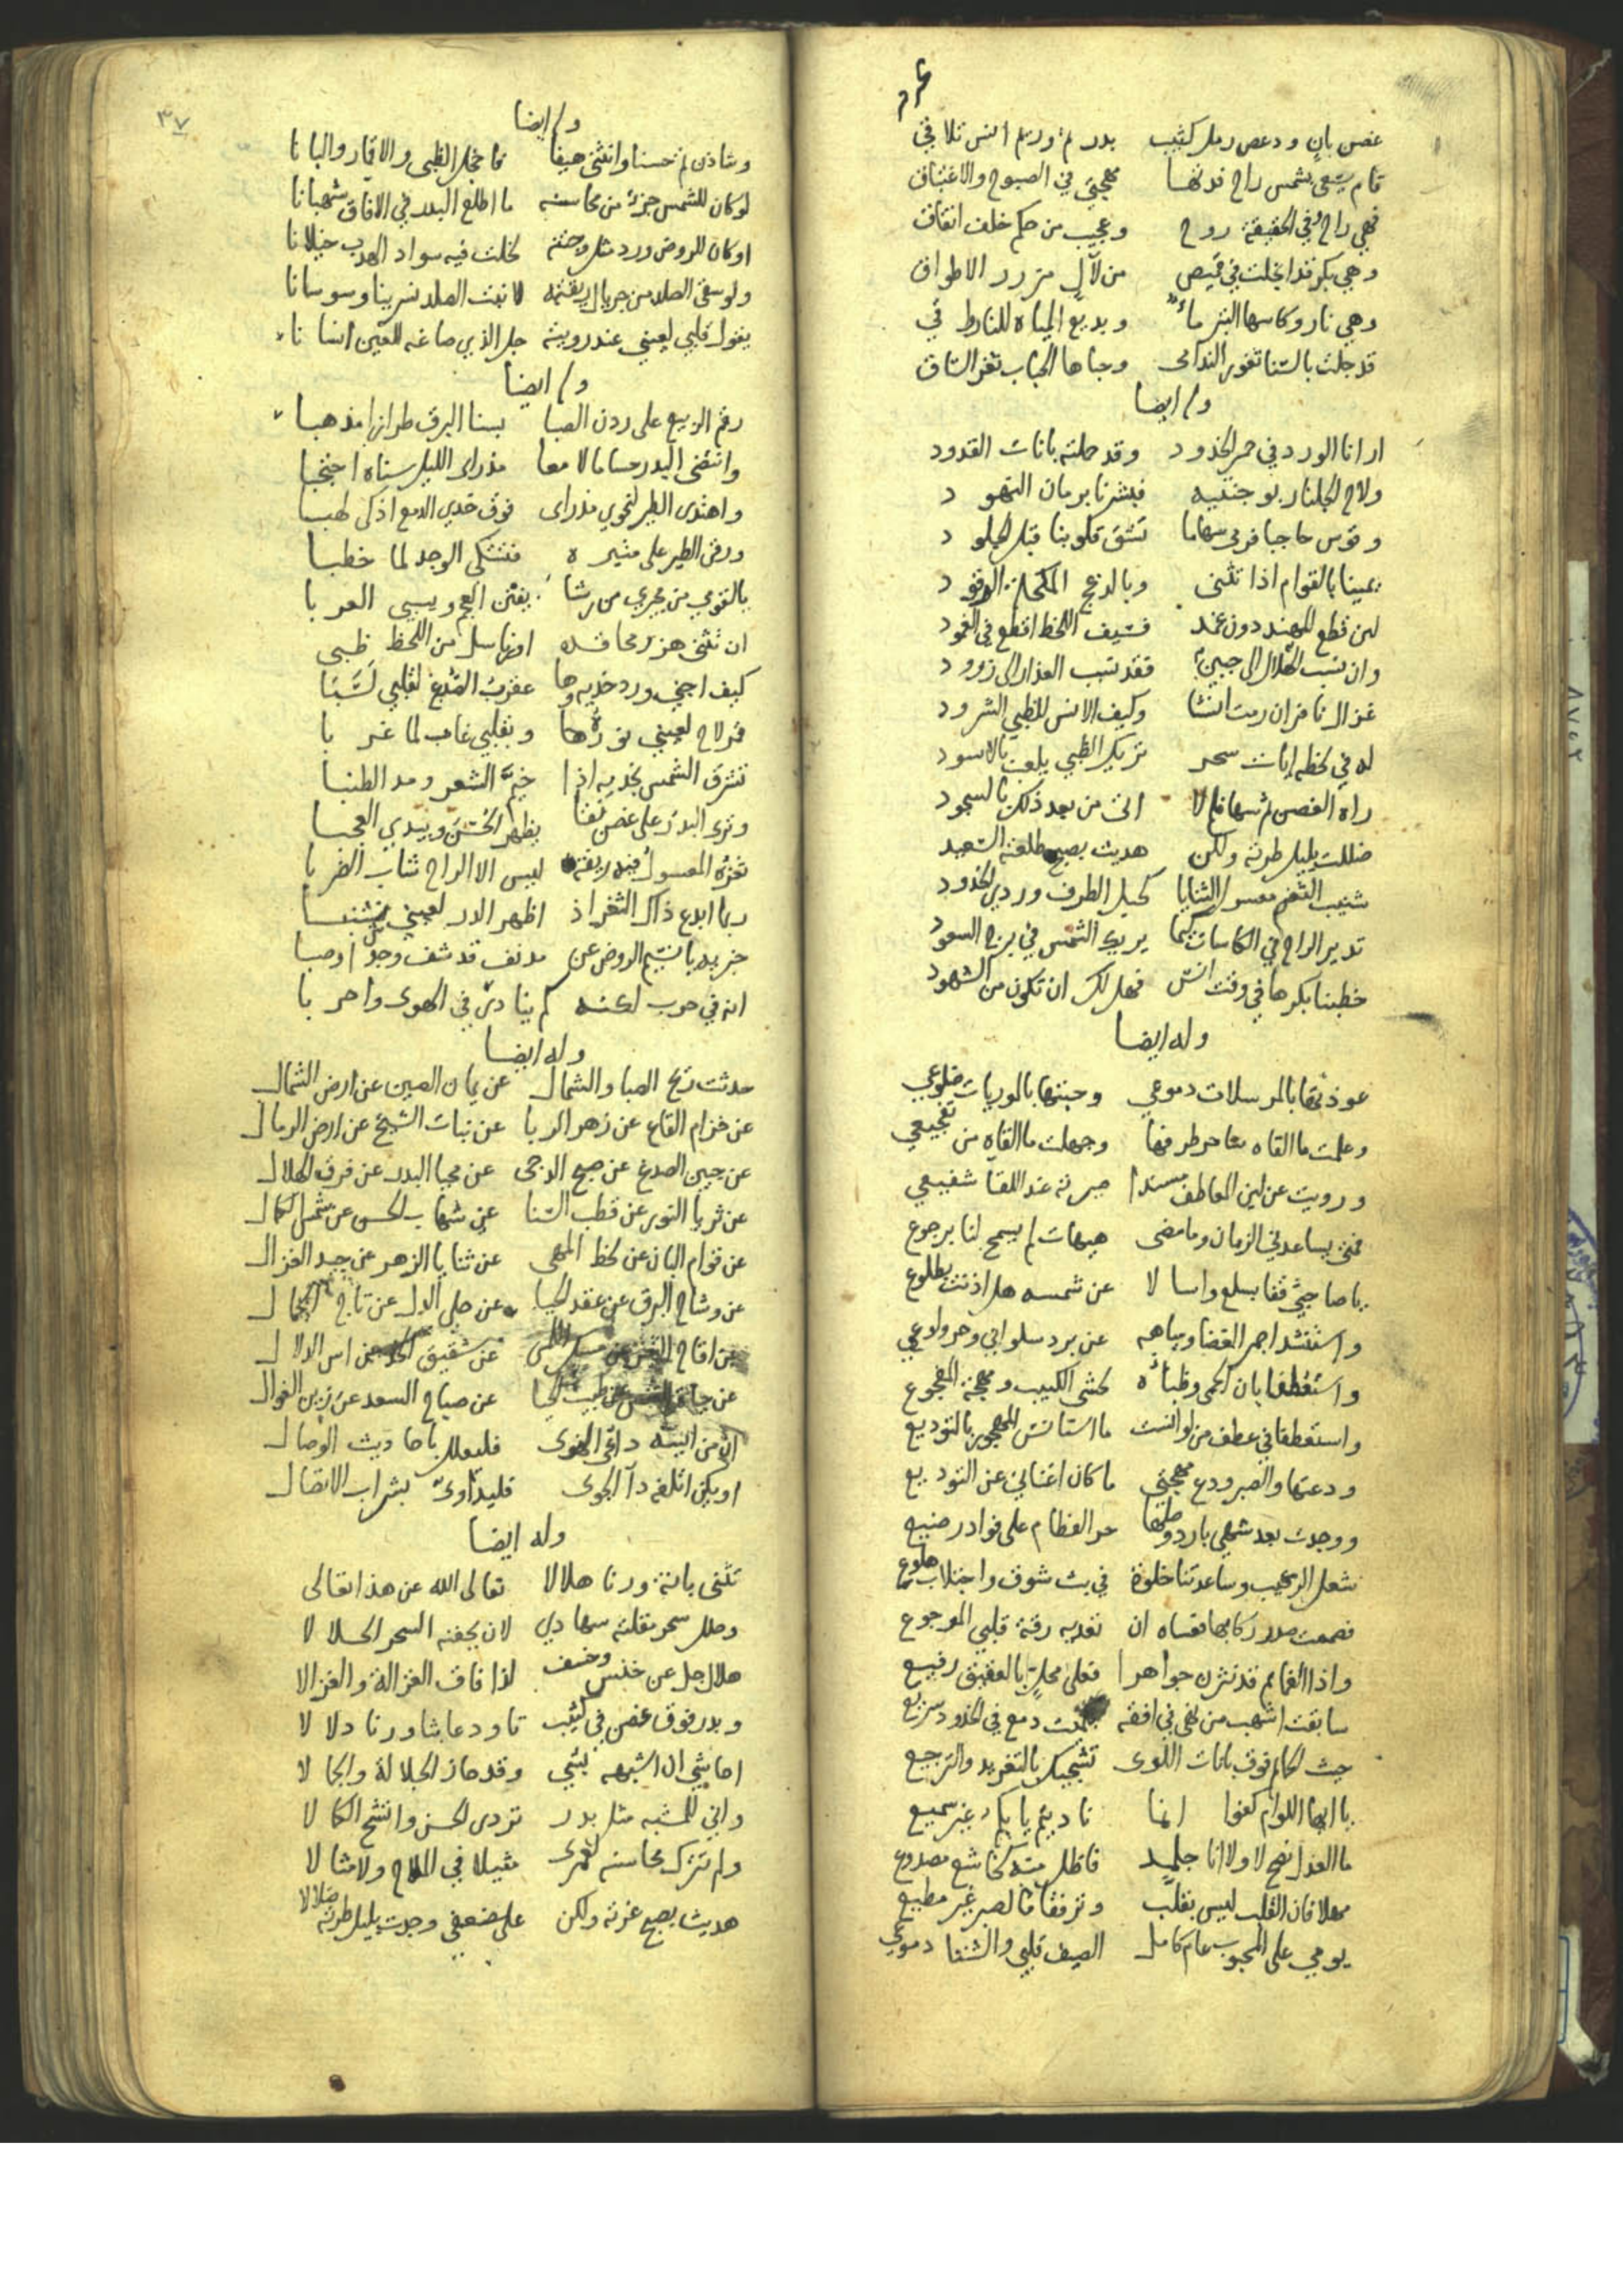 غصن بان ودعص رمل كثيب بدر تم وريم انس تلافي
قام يسعى بشمس راح فدتها مهجتي في الصبوح والاغتباق
فهي راح وفي الحقيقة روح وعجيب من حكم خلف اتفاق
وهي بكر قد انجلت في قميص من لآل مزرر الاطواق
وهي نار وكاسها النير ماء وبديع المياه للنار في
قد جلت بالسنا ثغور الندامى وحباها الحباب ثغر الساقي
وله ايضا
ارانا الورد في حمر الخدود وقد حملته بانات القدود
ولاح الجلنار بوجنتيه فبشرنا برمان النهود
وقوس حاجبا فرمى سهاما تشق قلوبنا قبل الجلود
يمينا بالقوام اذا تثنى وبالدعج المكحلة الرقود
لين قطع المهند دون غمد فسيف اللحظ اقطع في الغمود
وان نسب الهلال الى جبين فقد نسب العذار الى زرود
غزال نافر ان رمت انسا وكيف الانس للظبي الشرود
له في لحظه ايات سحر تريك الظبي يلعب بالاسود
راه الغصن تم سها فلا اتى من بعد ذلك بالسجود
ضللت بليل طرته ولكن هديت بصبح طلعته السعيد
شنيب الثغر معسول الثنايا كحيل الطرف وردي الخدود
تدير الراح في الكاسات كيما يريك الشمس في برج السعود
خطبنا بكرها في وقت انس فهل لك ان تكون من الشهود
وله ايضا
عوذتها بالمرسلات دموعي وحبتها بالموريات ضلوعي
وعلمت ما القاه من طرفها وجهلت ما القاه من تفجيعي
ورويت عن لين المعاطف مسندا صيرته عند اللقا شفيعي
فمتى يساعدني الزمان وما مضى هيهات لم يسمح لنا برجوع
يا صاحبي قفا بسلع واسالا عن شمسه هل اذنت بطلوع
واستنشدا جمر الغضا ومياهه عن برد سلواني وحر ولوعي
واستعطفا بان الحمى وظباه لحشى الكئيب ومهجة المفجوع
واستعطفا في عطف من لو انست ما استانس المهجور بالتوديع
ودعتها والصبر ودع مهجتي ما كان اغناني عن التوديع
ووجدت بعد شهي بارد وصلها حر الفطام على فواد رضيع
شغل الرقيب وساعدتنا خلوة في بث شوق واجتلاب هلوع
فضممت صدر ركابها فقساه ان تفديه رقة قلبي الموجوع
واذا الغمايم قد نثرن جواهرا فعلى محل بالعقيق رفيع
سابقت اشهب من في افقه دمع في الخدود سريع
حيث الحمام فوق بانات اللوى تشجيك بالتغريد والترجيع
يا ايها اللوام كفوا انما ناديتم يا بكم غير سميع
ما العذل نصح لا ولا انا جلمد فاظل منه كخاشع مصدوع
مهلا فان القلب ليس بقلب وترفقا فالصبر غير مطيع
يومي على المحبوب عام كامل الصيف قلبي والشتا دموعي
٣٧
وله ايضا
وشاذن تم حسنا وانثنى هيفا فاخجل الظبي والاقمار والبانا
لو كان للشمس جزء من محاسنه ما اطلع البدر في الافاق شهبانا
او كان للروض ورد مثل وجنته لخلت فيه سواد الهدب خيلانا
ولو سقى الصلد من جريال ريقته لانبت الصلد نسرينا وسوسانا
يقول قلبي لعيني عند رويته جل الذي صاغه للعين انسانا
وله ايضا
رقم الربيع على ردن الصبا بسنا البرق طرازا مذهبا
وانتضى البدر حساما لامعا مذ راى الليل سناه اجنحا
واهتدى الطير لنحوي مذ راى فوق خدي الدمع اذكى لهبا
ورقى الطير على منبره فتشكى الوجد لما خطبا
يا لقومي من مجيري من رشا يفتن العجم ويسبي العربا
ان تثنى هز رمحا قده او رنا سل من اللحظ ظبى
كيف اجني ورد خديه وها عقرب الصدغ لقلبي لسبا
قمر لاح لعيني نوره وبقلبي غاب لما غربا
تشرق الشمس بخديه اذا خيم الشعر ومد الطنبا
وترى البدر على غصن نقا يظهر الحسن ويبدي العجبا
ثغره المعسول فيه ريقة ليس الا الراح شاب الضربا
ربما ابدع ذاك الثغر اذ اظهر الدر لعيني شنبا
خبريه يا نسيم الروض عن مدنف قد شف وجدا وصبا
انه في حرب لكنه كم ينادي في الهوى واحربا
وله ايضا
حدثت ريح الصبا والشمال عن يمان العين عن ارض الشمال
عن خزام القاع عن زهر الربا عن نبات الشيح عن ارض الرمال
عن جبين الصدغ عن صبح الدجى عن محيا البدر عن فرق الهلال
عن ثريا النور عن قطب السنا عن شهاب الحسن عن شمس الكمال
عن قوام البان عن لحظ المهى عن ثنايا الزهر عن جيد الغزال
عن وشاح البرق عن عقد الحيا عن حلي الدل عن تاج الجمال
عن اقاح الثغر عن مسك اللمى عن شقيق الخد عن اس الدلال
عن صباح السعد عن زين الفوال
ان من البسه داعي الهوى فليعلل باحاديث الوصال
او يكن اتلفه داء الجوى فليداوى بشراب الاتصال
وله ايضا
تثنى بانة ورنا هلالا تعالى الله عن هذا تعالى
وحلل سحر مقلته سهادي لان بجفنه السحر الحلالا
هلال جل عن خنس وخسف لذا فاق الغزالة والغزالا
وبدر فوق غصن في كثيب تاود عابثا ورنا دلالا
احاشي ان اشبهه بشي وقد حاز الجلالة والجمالا
واني للمشبه مثل بدر تردى الحسن واتشح الكمالا
ولم تترك محاسنه لغيري مثيلا في الملاح ولا مثالا
هديت بصبح غرته ولكن على ضعفي وجدت بليل طرته ضلالا